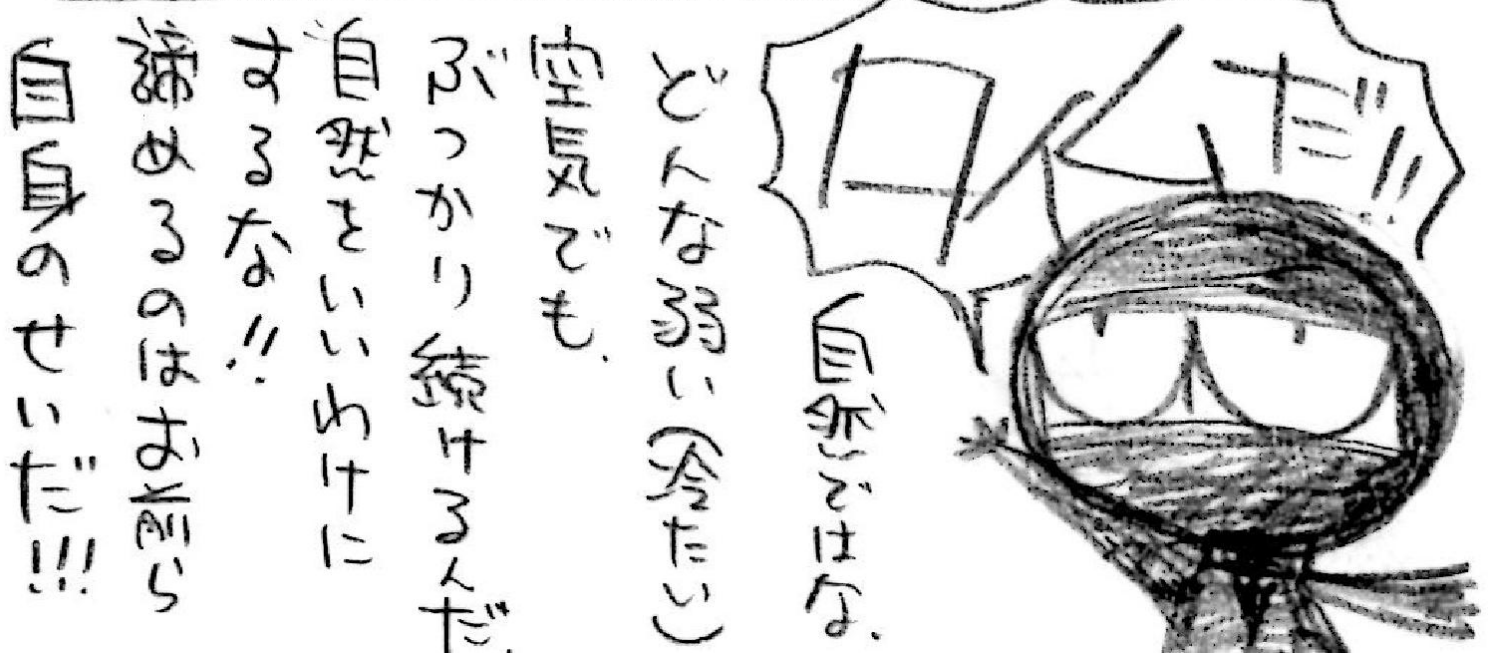 だ!!
自然ではな、
どんな弱い(冷たい)
空気でも、
ぶつかり続けるんだ、
自然をいいわけに
するな!!
諦めるのはお前ら
自身のせいだ!!!